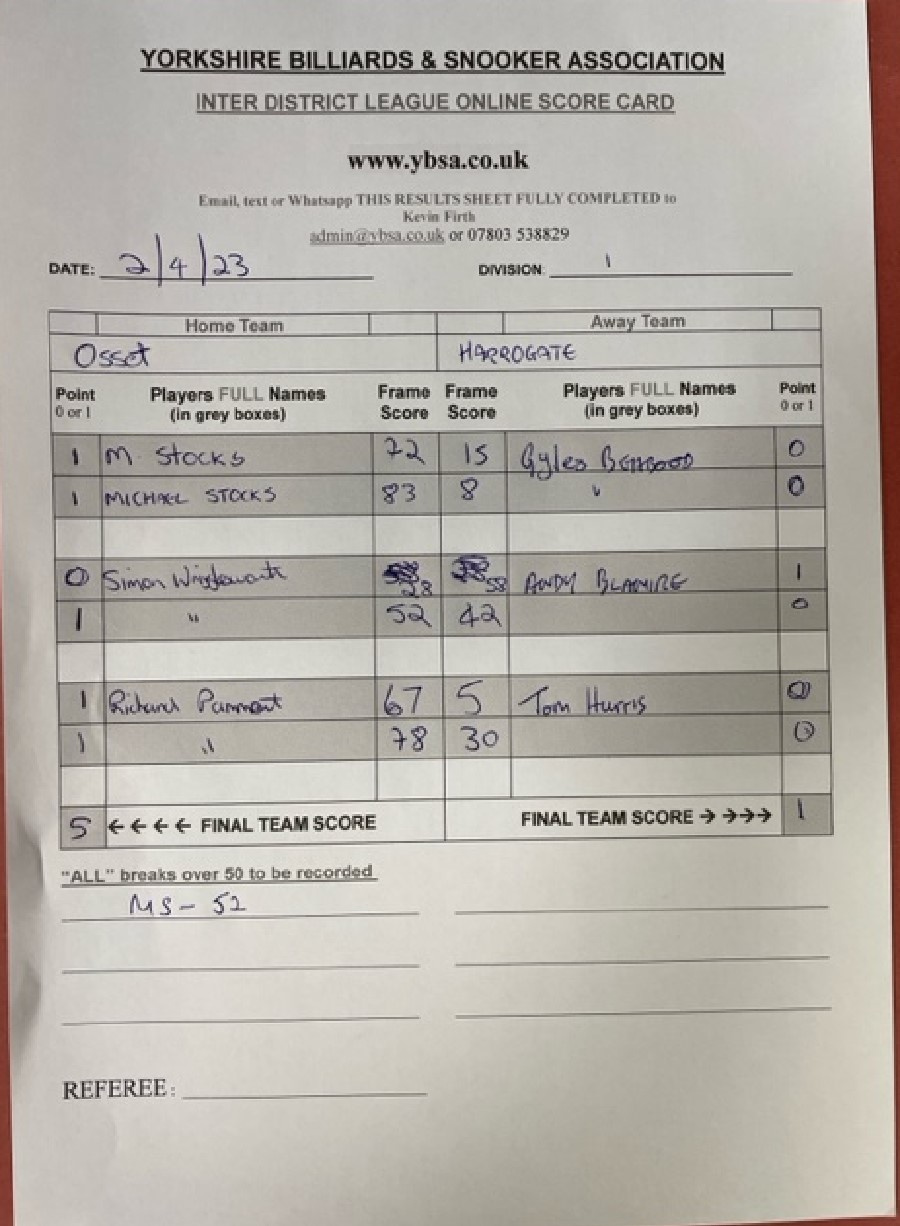 YORKSHIRE BILLIARDS & SNOOKER ASSOCIATION
INTER DISTRICT LEAGUE ONLINE SCORE CARD
www.ybsa.co.uk
Email, text or Whatsapp THIS RESULTS SHEET FULLY COMPLETED to
Kevin Firth
admin@ybsa.co.uk or 07803 538829
DATE: 2/4/23 DIVISION: 1
Home Team Away Team
Osset HARROGATE
Point Players FULL Names Frame Frame Players FULL Names Point
0 or 1 (in grey boxes) Score Score (in grey boxes) 0 or 1
1 M. STOCKS 72 15 Gyles 0
1 MICHAEL STOCKS 83 8 " 0
0 Simon 28 58 ANDY BLAMIRE 1
1 " 52 42 0
1 Richard 67 5 Tom Harris 0
1 " 78 30 0
5 ← ← ← ← FINAL TEAM SCORE FINAL TEAM SCORE → →→→ 1
"ALL" breaks over 50 to be recorded
MS - 52
REFEREE: